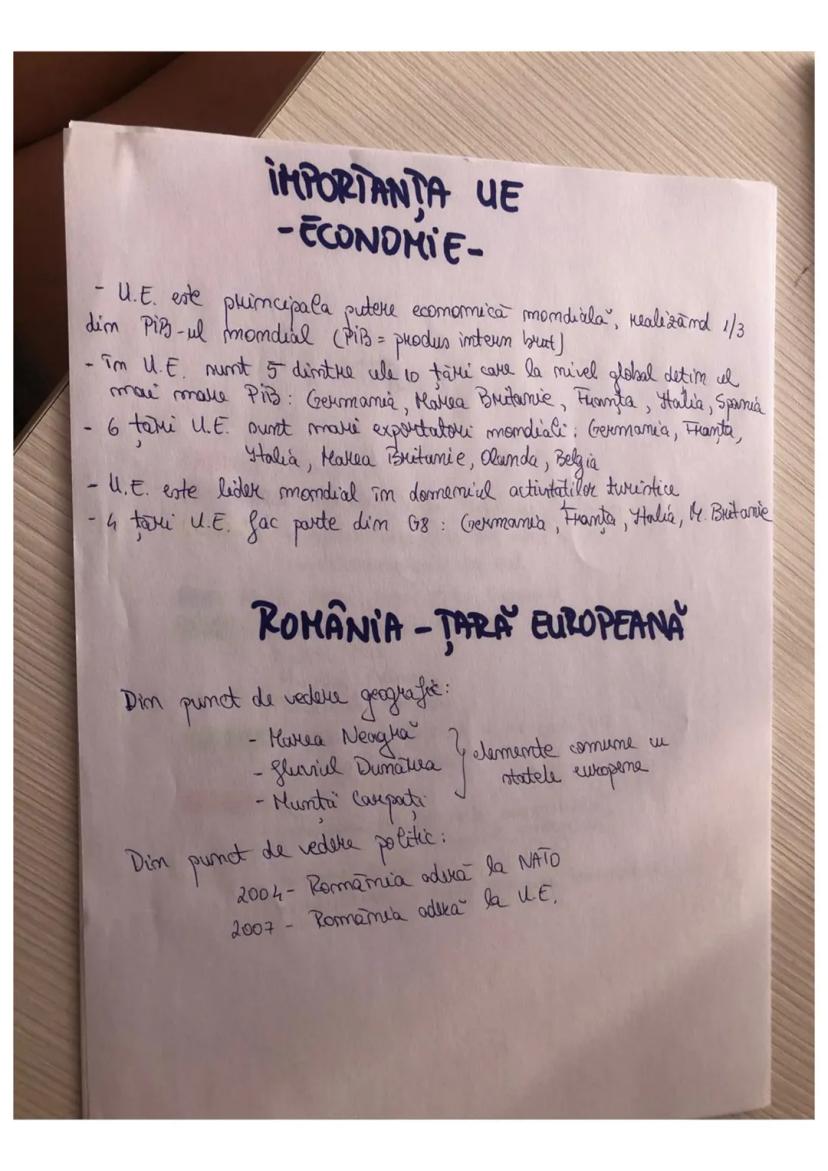 IMPORTANȚA UE
-ECONOMIE-
- U.E. este principala putere economică mondială, realizând 1/3
din PiB-ul mondial (PiB = produs intern brut)
- în U.E. sunt 5 dintre cele 10 țări care la nivel global dețin cel
mai mare PiB: Germania, Marea Britanie, Franța, Italia, Spania
- 6 țări U.E. sunt mari exportatori mondiali: Germania, Franța,
Italia, Marea Britanie, Olanda, Belgia
- U.E. este lider mondial în domeniul activitatilor turistice
- 4 țări U.E. fac parte din G8: Germania, Franța, Italia, M. Britanie
ROMÂNIA - ȚARĂ EUROPEANĂ
Din punct de vedere geografic:
- Marea Neagră
- fluviul Dunărea
- Munții Carpați
} elemente comune cu
statele europene
Din punct de vedere politic:
2004 - România aderă la NATO
2007 - România aderă la U.E.